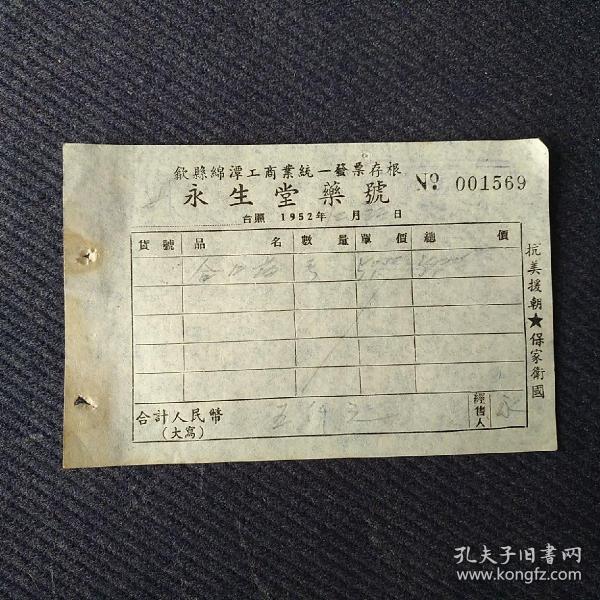 歙縣綿潭工商業統一發票存根
永生堂藥號 No. 001569
台照 1952年 月 日
貨號 品名 數量 單價 總價
合計人民幣 五仟元 經售人 永
(大寫)
抗美援朝★保家衛國
孔夫子旧书网
www.kongfz.com